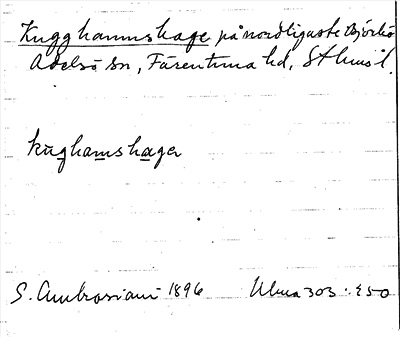 Kugghamnshage på nordligaste Björkö
Adelsö sn, Färentuna hd, Sthms l.
kughamshagen
S. Ambrosiani 1896 Ulma 303:450